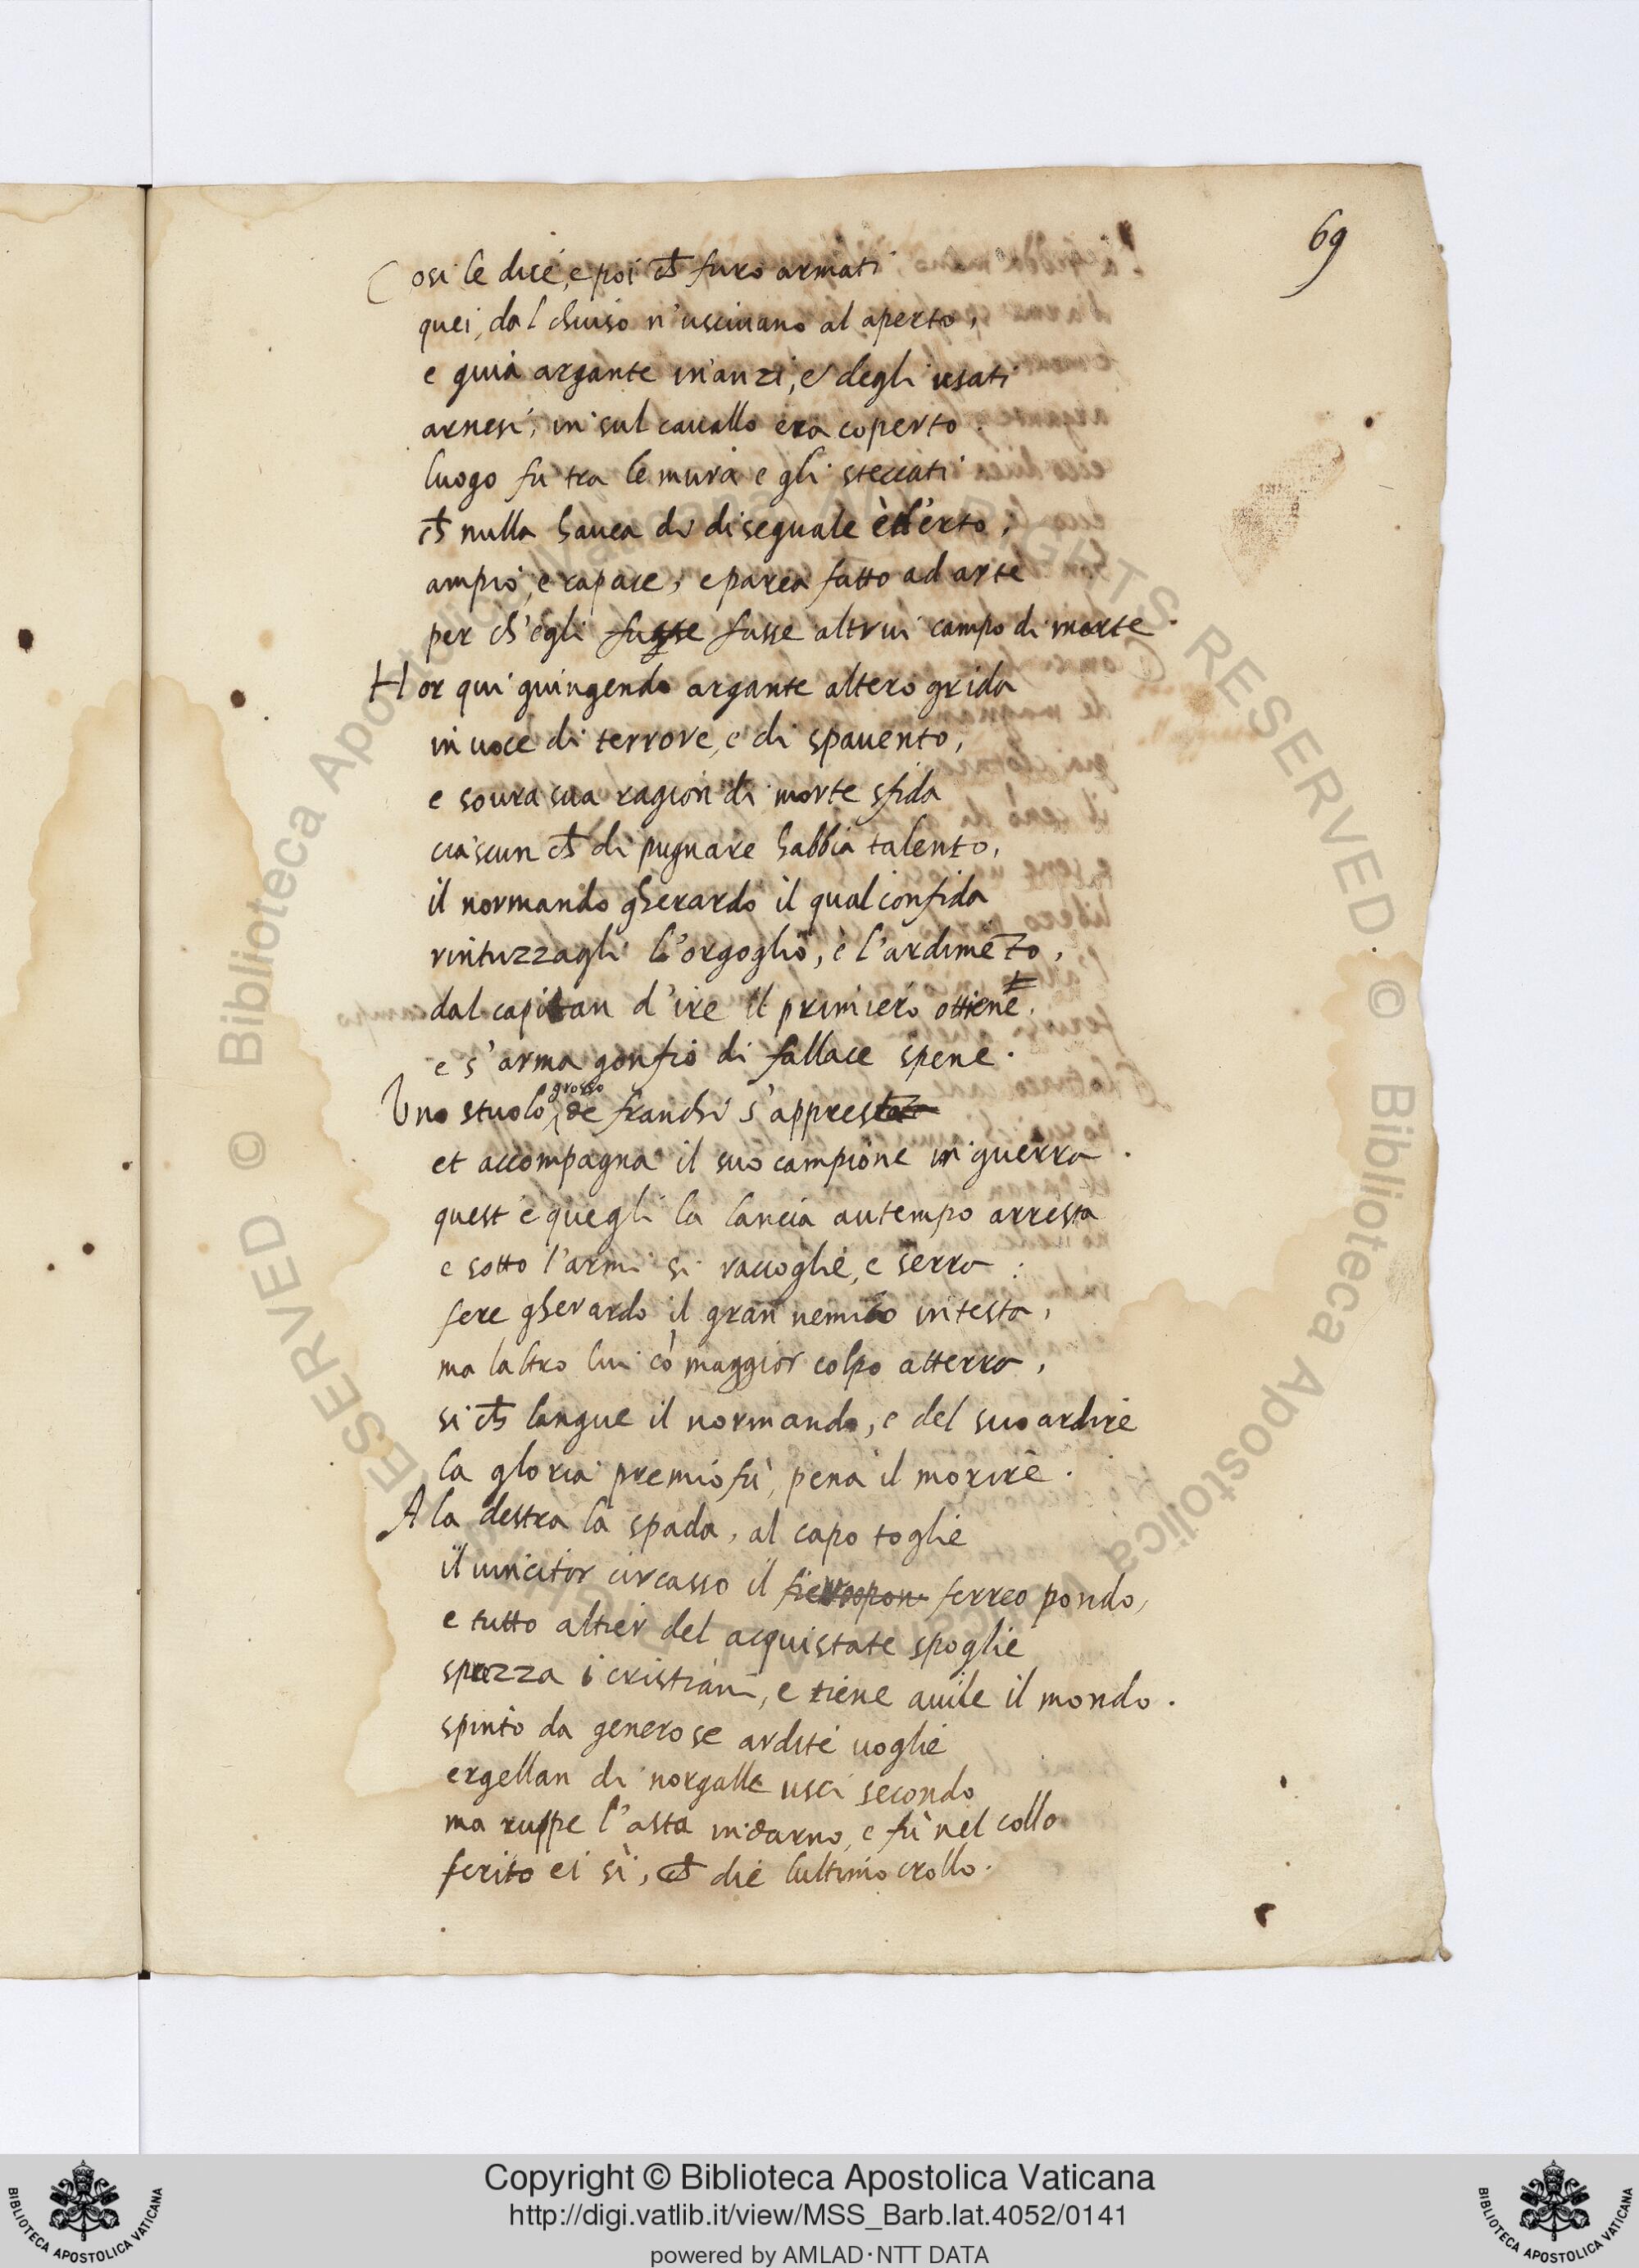 69
Cosi le dice, e poi ch̄ furo armati
quei, dal chiuso n'usciuano al aperto,
e guià argante in'anzi, e degli usati
arnesi, in sul cauallo era coperto.
luogo fu tra le mura e gli steccati
ch̄ nulla hauea di diseguale ed erto,
ampio, e capace, e parea fatto ad arte
per ch'egli fusse altrui campo di marte.
Hor qui giungendo argante altero grida
in uoce di terrore, e di spauento,
e soura sua ragion di morte sfida
ciascun ch̄ di pugnare habbia talento,
il normando gherardo il qual confida
rintuzzagli l'orgoglio, e l'ardimēto,
dal capitan d'ire il primiero ottiene.
e s'arma gonfio di fallace spene.
Uno stuolo grosso de franchi s'appresta
et accompagna il suo campione in guerra.
quest e quegli la lancia autempo arresta
e sotto l'armi si raccoglie, e serra:
fere gherardo il gran nemico in testa,
ma laltro lui cō maggior colpo atterra,
si ch̄ langue il normando, e del suo ardire
la gloria premio fù, pena il morire.
A la destra la spada, al capo toglie
il uincitor circasso il ferreo pondo,
e tutto altier del acquistate spoglie
sprezza i cristiani, e tiene auile il mondo.
spinto da generose ardite uoglie
ergellan di norgalle usci secondo
ma ruppe l'asta indarno, e fù nel collo
ferito ei sì, ch̄ die lultimo crollo.
Copyright © Biblioteca Apostolica Vaticana
http://digi.vatlib.it/view/MSS_Barb.lat.4052/0141
powered by AMLAD·NTT DATA
BIBLIOTECA APOSTOLICA VATICANA
BIBLIOTECA APOSTOLICA VATICANA